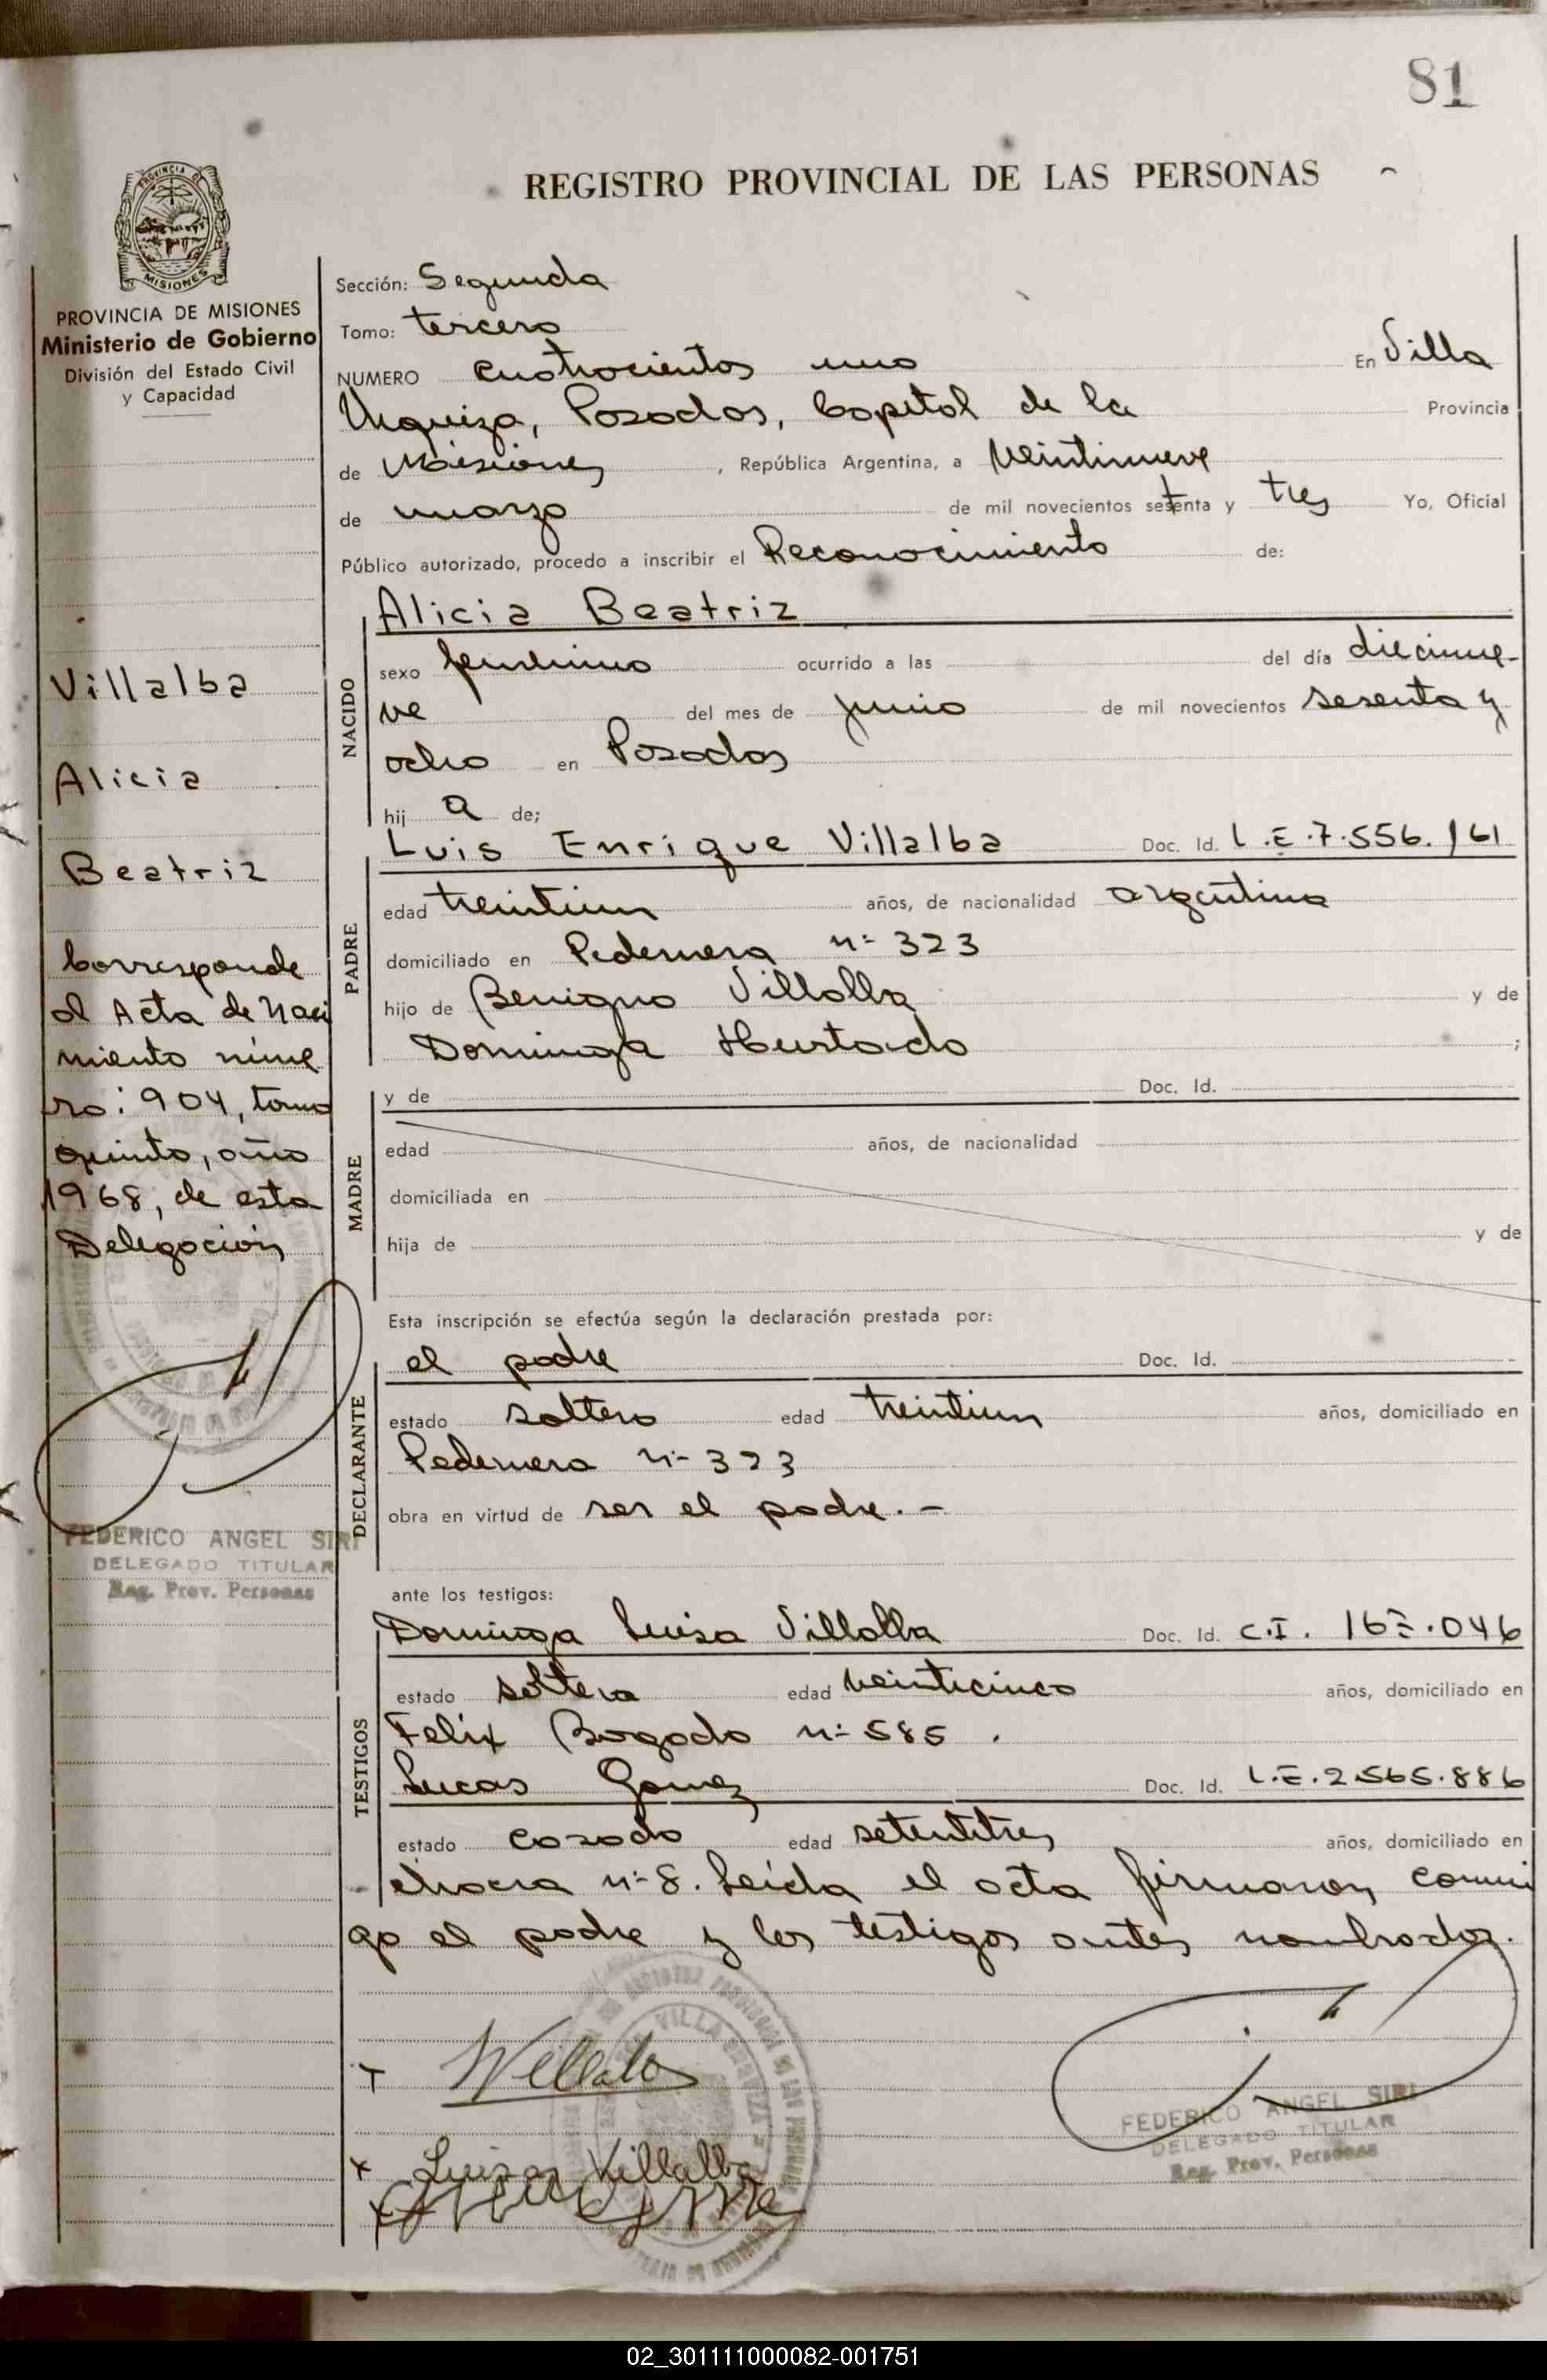 81
REGISTRO PROVINCIAL DE LAS PERSONAS
PROVINCIA DE MISIONES
PROVINCIA DE MISIONES
Ministerio de Gobierno
División del Estado Civil
y Capacidad
Villalba
Alicia
Beatriz
Corresponde
al Acta de Naci
miento núme
ro: 904, tomo
quinto, año
1968, de esta
Delegación
FEDERICO ANGEL SIRI
DELEGADO TITULAR
Reg. Prov. Personas
Sección: Segunda
Tomo: tercero
NUMERO cuatrocientos uno En Villa
Urquiza, Posadas, Capital de la Provincia
de Misiones, República Argentina, a veintinueve
de marzo de mil novecientos setenta y tres Yo, Oficial
Público autorizado, procedo a inscribir el Reconocimiento de:
NACIDO
Alicia Beatriz
sexo femenino ocurrido a las del día diecinue-
ve del mes de junio de mil novecientos sesenta y
ocho en Posadas
hij a de;
PADRE
Luis Enrique Villalba Doc. Id. L.E.7.556.161
edad treintiun años, de nacionalidad argentina
domiciliado en Pedernera nº 323
hijo de Benigno Villalba y de
Dominga Hurtado ;
MADRE
y de Doc. Id.
edad años, de nacionalidad
domiciliada en
hija de y de
Esta inscripción se efectúa según la declaración prestada por:
DECLARANTE
el padre Doc. Id.
estado soltero edad treintiun años, domiciliado en
Pedernera nº 323
obra en virtud de ser el padre.-
ante los testigos:
TESTIGOS
Dominga Luisa Villalba Doc. Id. C.I. .046
estado soltera edad veinticinco años, domiciliado en
Felix Bogado nº 585.
Lucas Gomez Doc. Id. L.E.2.565.886
estado casado edad setentitres años, domiciliado en
chacra nº 8. Leída el acta firmaron conmi
go el padre y los testigos antes nombrados.
Villalba
Luisa Villalba
VILLA URQUIZA
FEDERICO ANGEL SIRI
DELEGADO TITULAR
Reg. Prov. Personas
02_301111000082-001751